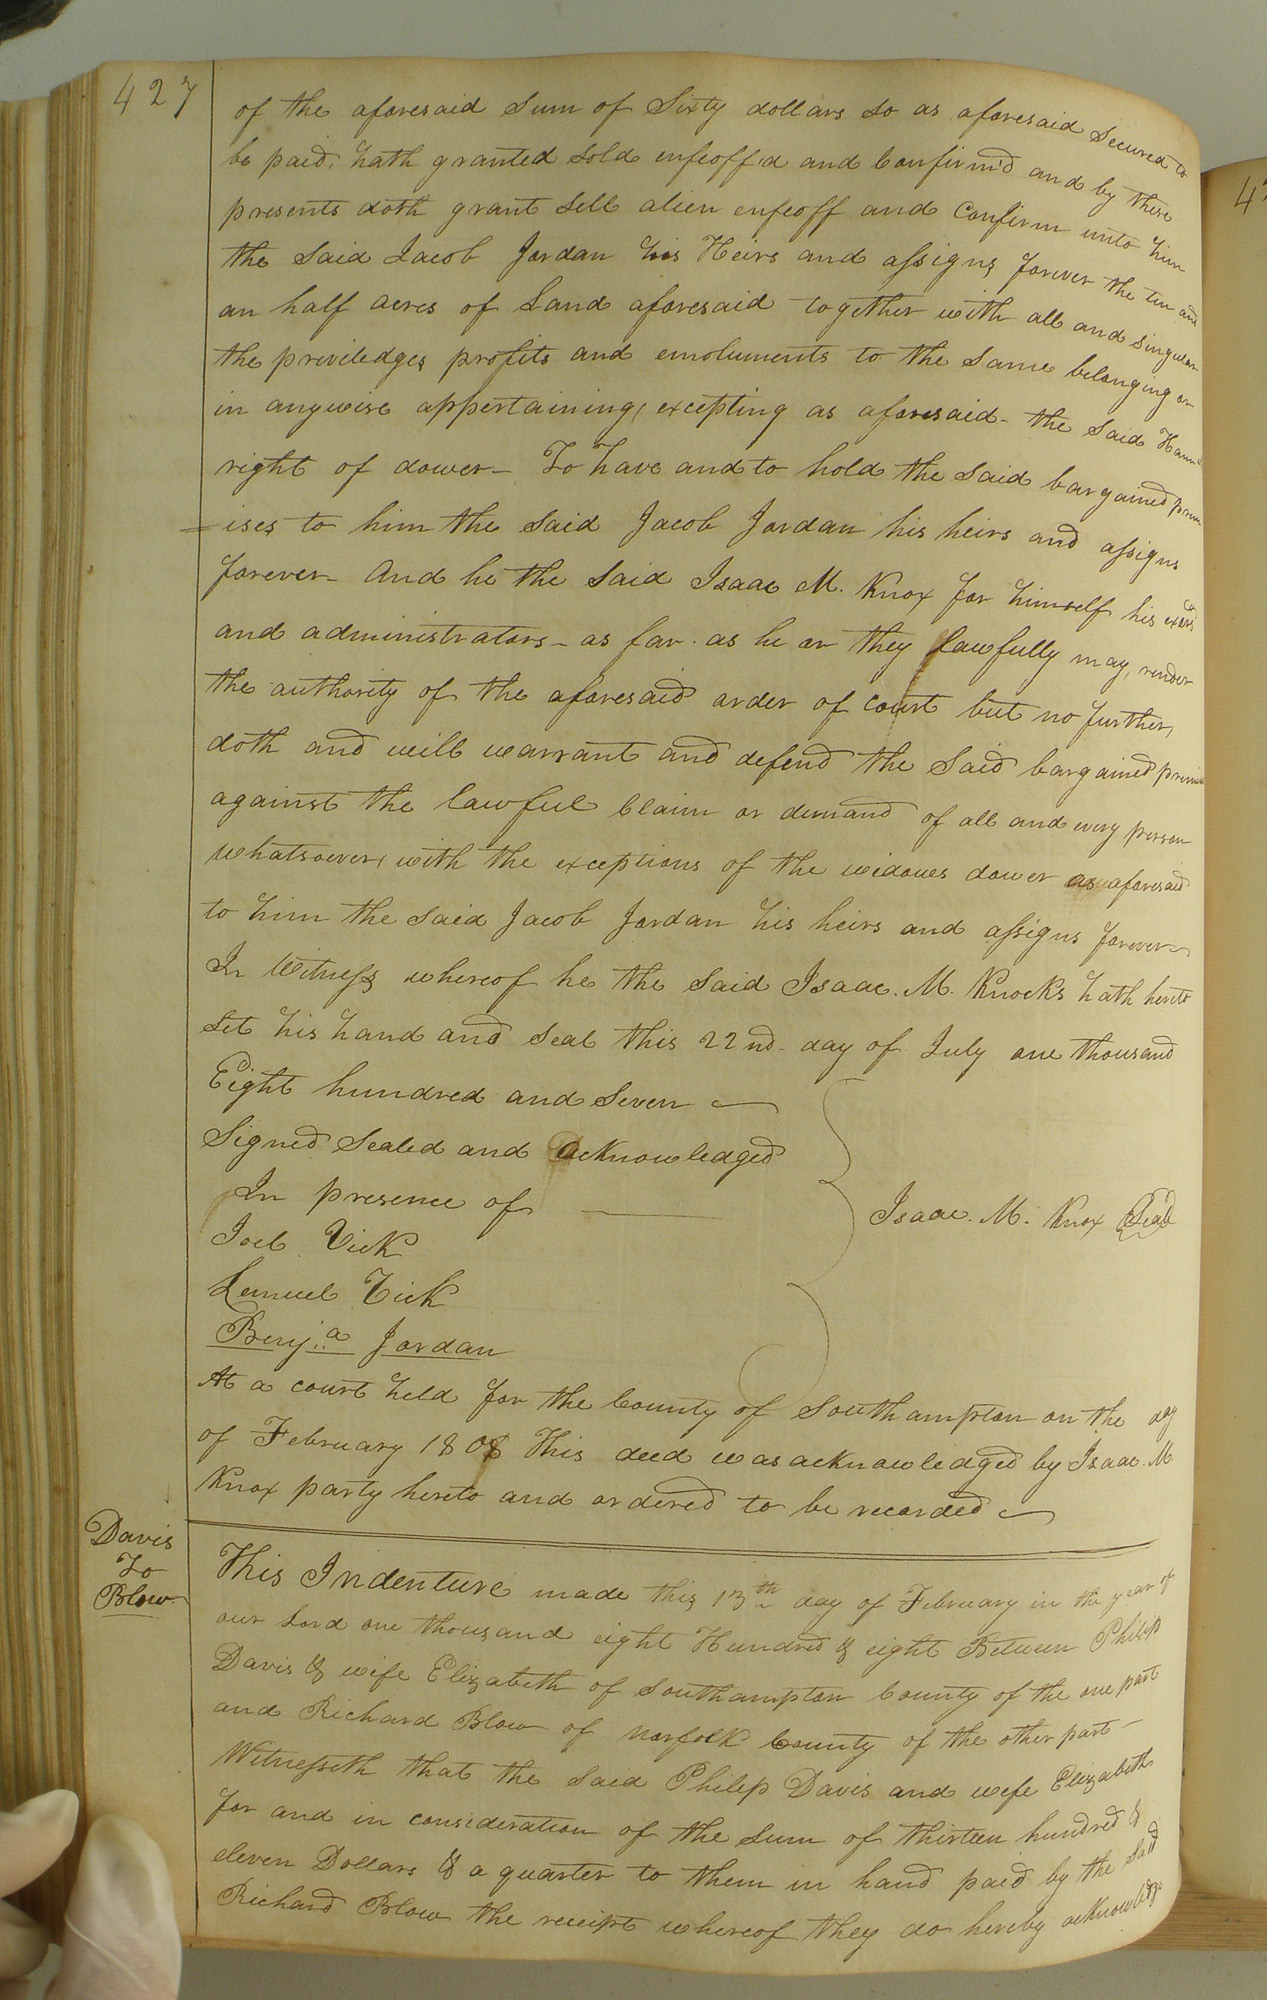 427
of the aforesaid Sum of Sixty dollars so as aforesaid Secured to
be paid: hath granted sold enfeoff'd and Confirm'd and by these
presents doth grant sell alien enfeoff and Confirm unto him
the said Jacob Jordan his Heirs and assigns forever the ten and
an half acres of Land aforesaid together with all and singular
the priviledges profits and emoluments to the Same belonging or
in anywise appertaining, excepting as aforesaid - the said
right of dower - To have and to hold the said bargained prem
=ises to him the said Jacob Jordan his heirs and assigns
forever - And he the said Isaac M. Knox for himself his exors
and administrators - as far as he or they lawfully may, under
the authority of the aforesaid order of court but no further,
doth and will warrant and defend the said bargained
against the lawful Claim or demand of all and every person
whatsoever, with the exceptions of the widows dower as aforesaid
to him the said Jacob Jordan his heirs and assigns forever
In Witness whereof he the said Isaac. M. Knocks hath hereto
Set his hand and Seal this 22nd day of July one thousand
Eight hundred and Seven
Signed Sealed and acknowledged
In presence of
Isaac. M. Knox Seal
Joel Vick
Lemuel Vick
Benja Jordan
At a court held for the County of Southampton on the day
of February 1808 This deed was acknowledged by Isaac. M.
Knox party hereto and ordered to be recorded
Davis
To
Blow
This Indenture made this 13th day of February in the year of
our Lord one thousand eight Hundred & eight Between Philip
Davis & wife Elizabeth of Southampton County of the one part
and Richard Blow of Norfolk County of the other part -
Witnesseth that the said Philip Davis and wife Elizabeth
for and in consideration of the Sum of thirteen hundred &
eleven Dollars & a quarter to them in hand paid by the said
Richard Blow the receipt whereof they do hereby acknowledge